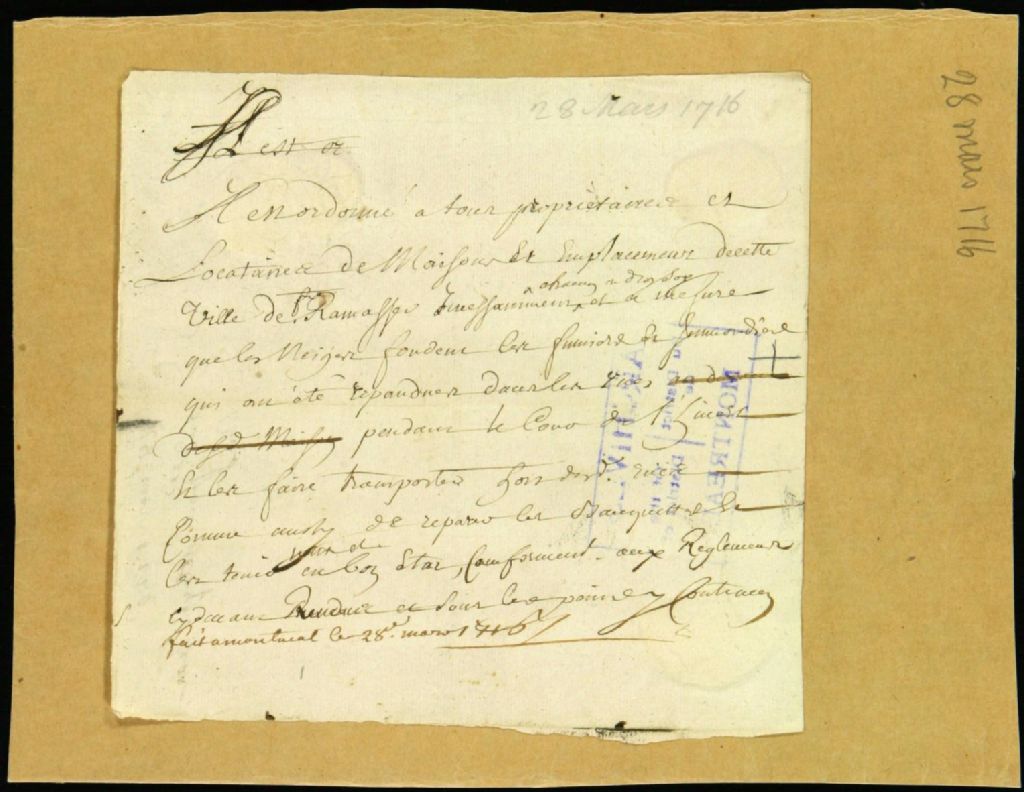 28 Mars 1716
28 mars 1716
Il est or
Il est ordonné a tous proprietaires et
Locataires de Maisons Et Emplacemens decette
Ville de Ramasser Incessamment et a mesure
chacun
que les Neiges fondent les fumiers et Immondices
qui ont été repandues dans les rües
pendant le Cours de l'hiver
Et les faire transporter hors desd. rües
Comme aussy de reparer les Banquettes Et
Les tenir en bon Etat, Conformemt. aux Reglemens
cydevant Rendus et sous les peines y Contenues
fait a montreal le 28e. mars 1716
MONTREAL
ARCHIVES